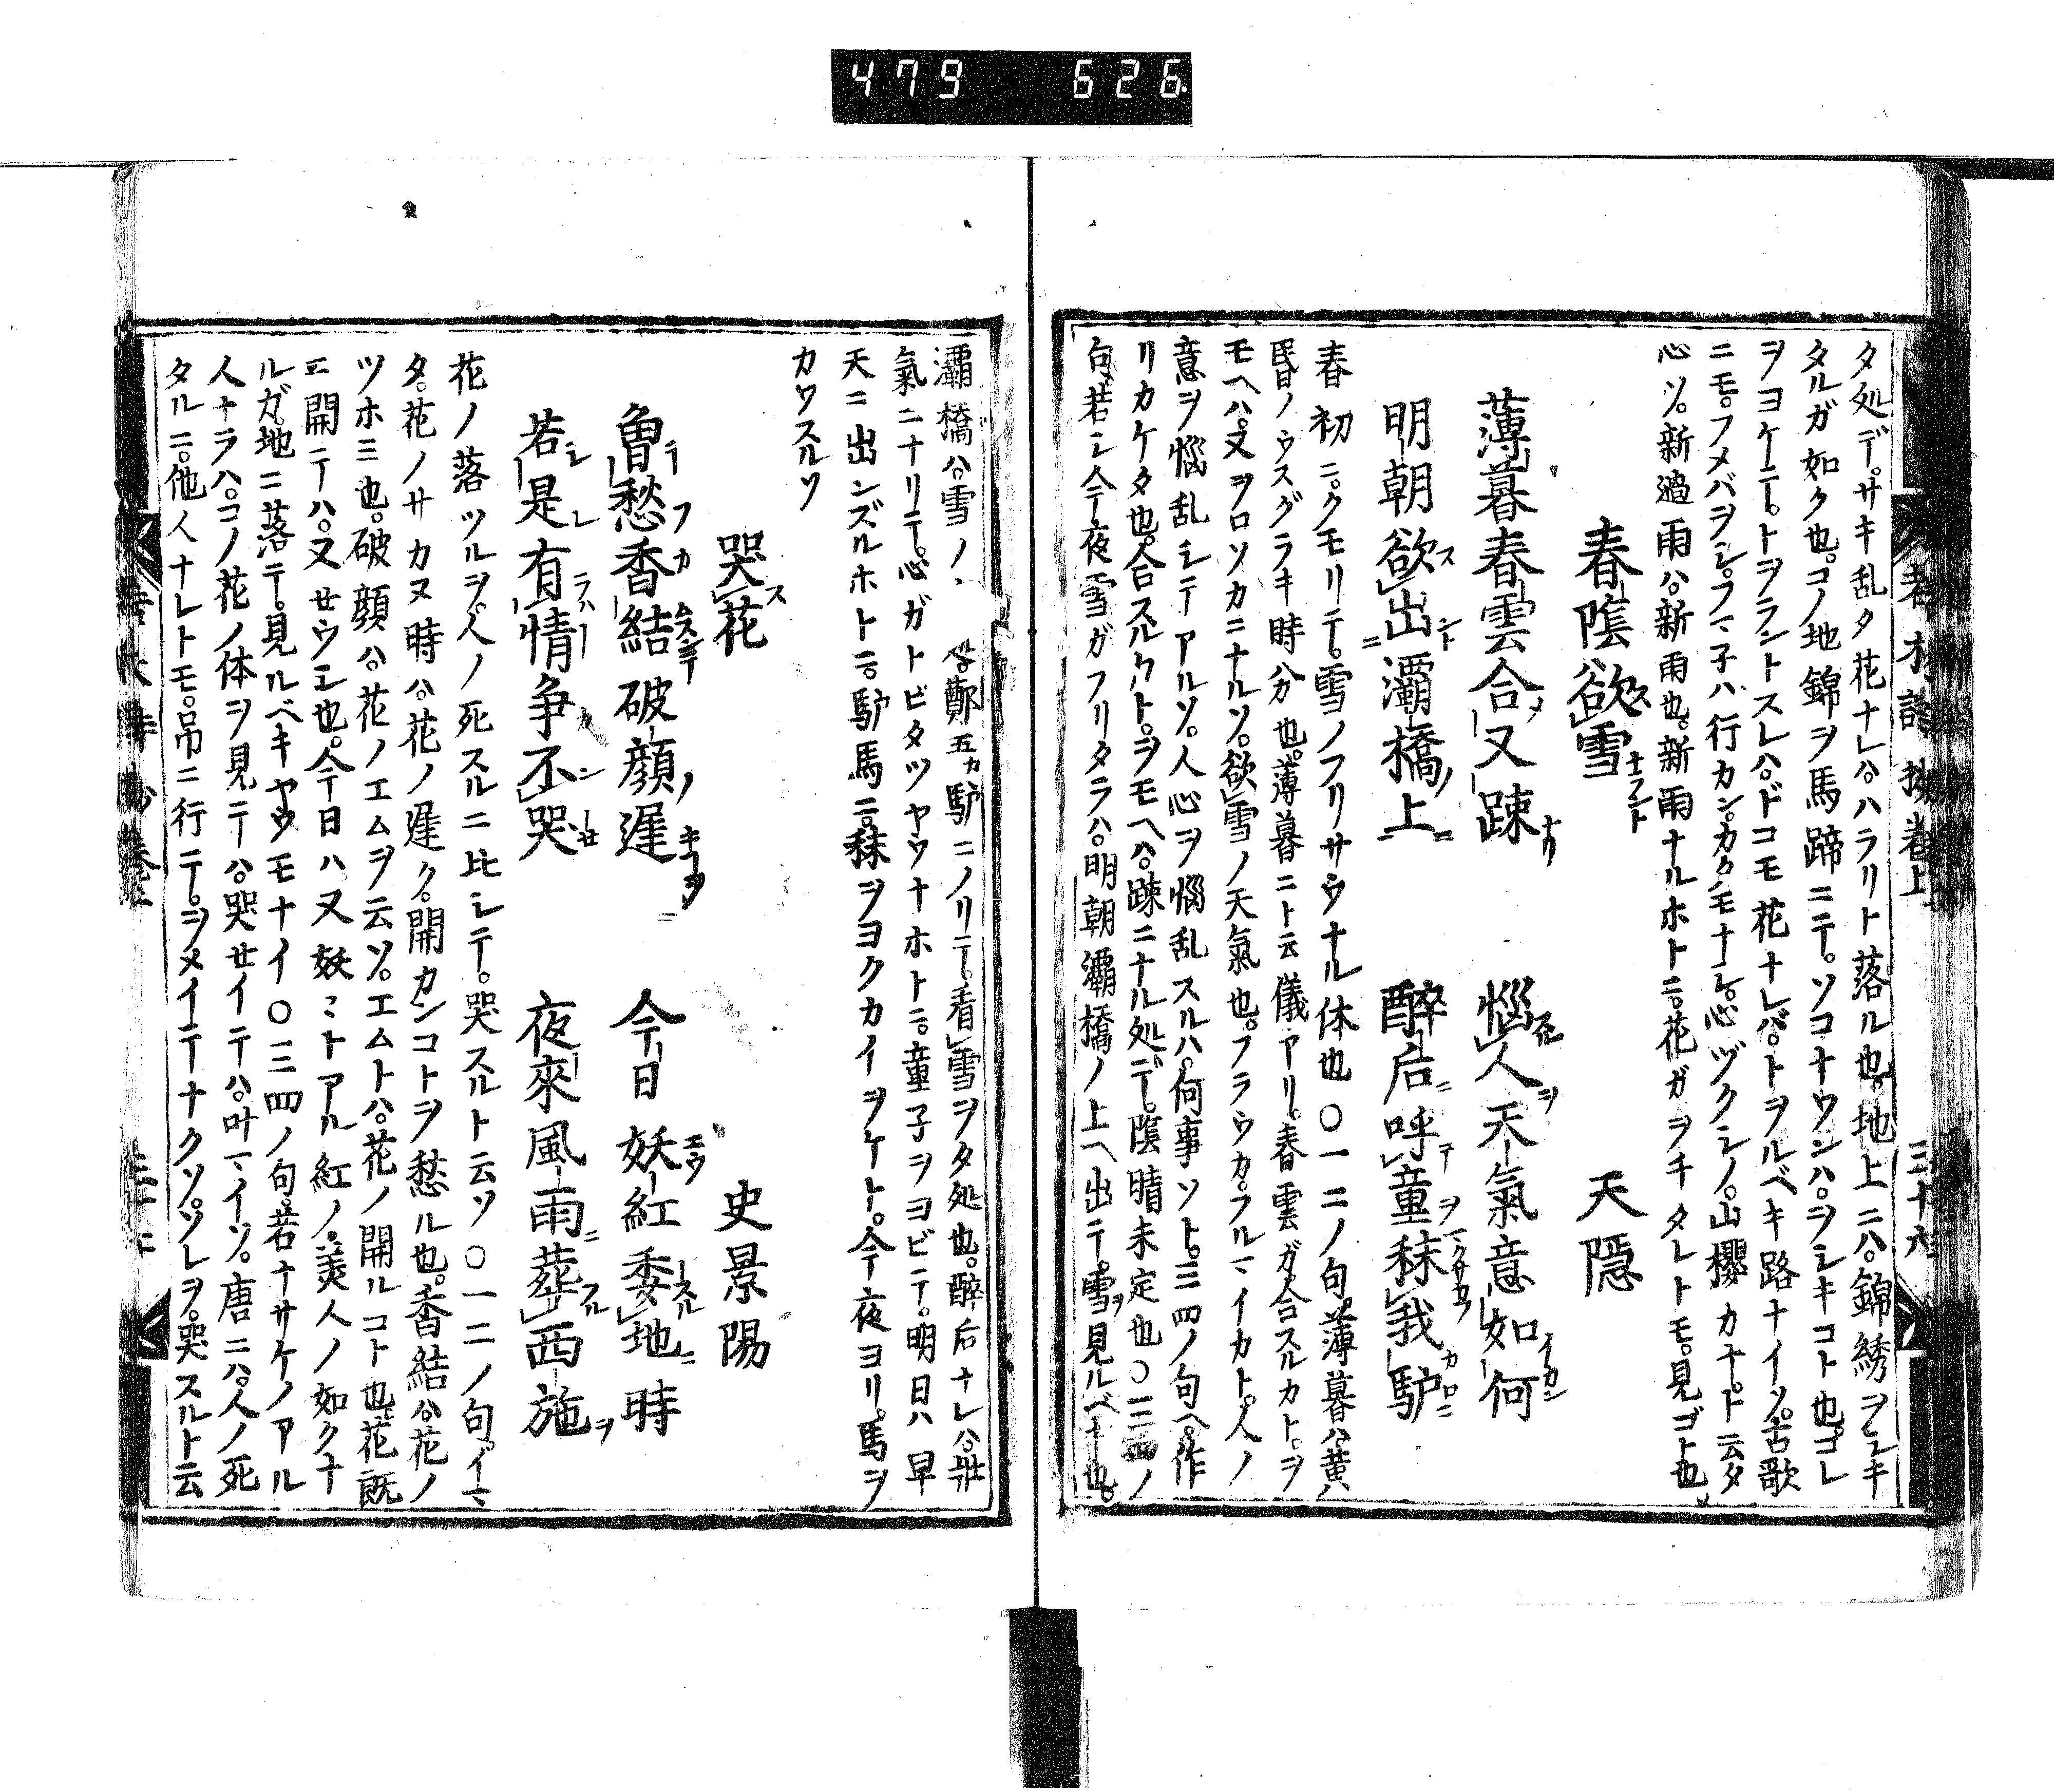 479 626
タ処デ。サキ乱タ花ナレハ。ハラリト落ル也。地上ニハ。錦綉ヲシキ
タルガ如ク也。コノ地錦ヲ馬蹄ニテ。ソコナウンハ。ヲシキコト也。コレ
ヲヨケテ。トヲラントスレハ。ドコモ花ナレバ。トヲルベキ路ナイソ。古歌
ニモ。フメバヲシ。フマ子ハ行カン。カタモナシ。心ヅクシノ。山櫻カナ。ト云タ
心ソ。新過雨ハ。新雨也。新雨ナルホトニ。花ガヲキタレトモ。見ゴト也
春陰欲雪 天隠
薄暮春雲合又疎 惱人天氣意如何
明朝欲出灞橋上 醉后呼童秣我馿
春初ニ。クモリテ。雪ノフリサウナル体也〇一二ノ句。薄暮ハ。黄
昏ノウスグラキ時分也。薄暮ニト云儀アリ。春雲ガ。合スルカト。ヲ
モヘハ。又ヲロソカニナルソ。欲雪ノ天氣也。フラウカ。フルマイカト。人ノ
意ヲ惱乱シテアルソ。人心ヲ惱乱スルハ。何事ソト。三四ノ句ヘ。作
リカケタ也。合スルカト。ヲモヘハ。踈ニナル処デ。陰晴未定也〇三四ノ
句。若シ今夜雪ガフリタラハ。明朝灞橋ノ上ヘ出テ。雪ヲ見ルベキ也。
灞橋ハ。雪ノ 鄭五カ馿ニノリテ。看雪ヲタ処也。醉后ナレハ。壮
氣ニナリテ。心ガトビタツヤウナホトニ。童子ヲヨビテ。明日ハ早
天ニ出ンズルホトニ。馿馬ニ。秣ヲヨクカイヲケト。今夜ヨリ。馬ヲ
カワスルソ
哭花 史景陽
曽愁香結破顔遅 今日妖紅委地時
若是有情争不哭 夜來風雨葬西施
花ノ落ツルヲ。人ノ死スルニ比シテ。哭スルト云ソ〇一二ノ句。イマ
タ。花ノサカヌ時ハ。花ノ遅ク。開カンコトヲ愁ル也。香結ハ。花ノ
ツホミ也。破顔ハ。花ノエムヲ云ソ。エムトハ。花ノ開ルコト也。花既
ニ開テハ。又せウシ也。今日ハ又妖ミトアル紅ノ。美人ノ如クナ
ルガ。地ニ落テ。見ルベキヤウモナイ〇三四ノ句。若ナサケノアル
人ナラハ。コノ花ノ体ヲ見テハ。哭せイテハ。叶マイソ。唐ニハ。人ノ死
タルニ。他人ナレトモ。吊ニ行テ。ヲメイテナクソ。ソレヲ。哭スルト云